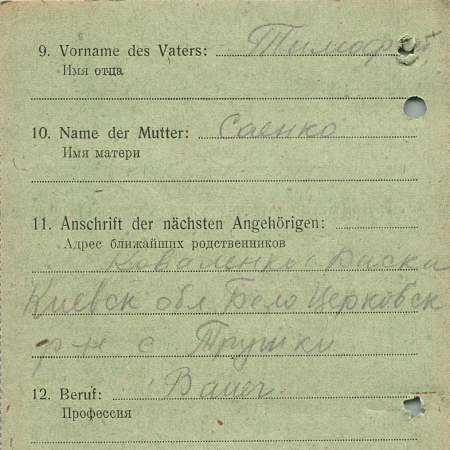 9. Vorname des Vaters: Тимофей
Имя отца
10. Name der Mutter: Саенко
Имя матери
11. Anschrift der nächsten Angehörigen:
Адрес ближайших родственников
Коваленко
Киевск обл Бело Церковск
р-н с Трушки
12. Beruf: Bauer
Профессия